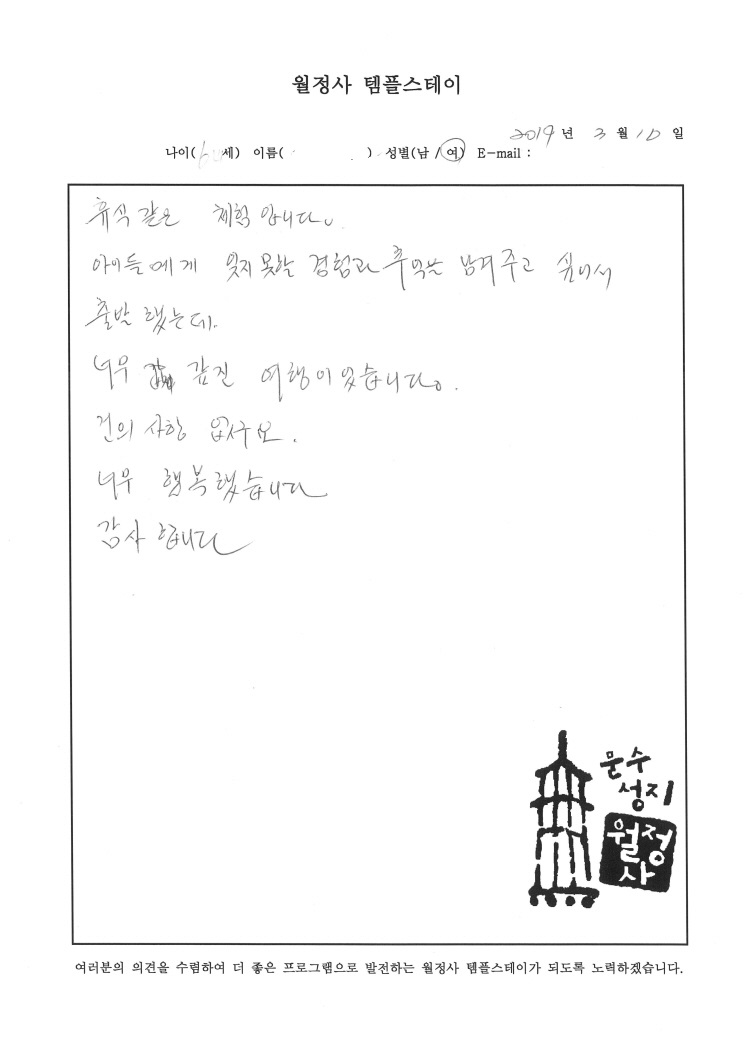 월정사 템플스테이
2019 년 3 월 10 일
나이( 세) 이름( ) 성별(남 / 여) E-mail :
휴식 같은 체험 입니다.
아이들에게 잊지 못할 경험과 추억을 남겨주고 싶어서
출발 했는데.
너무 값진 여행이었습니다.
건의 사항 없구요.
너무 행복했습니다
감사 합니다
문수
성지
월정
사
여러분의 의견을 수렴하여 더 좋은 프로그램으로 발전하는 월정사 템플스테이가 되도록 노력하겠습니다.